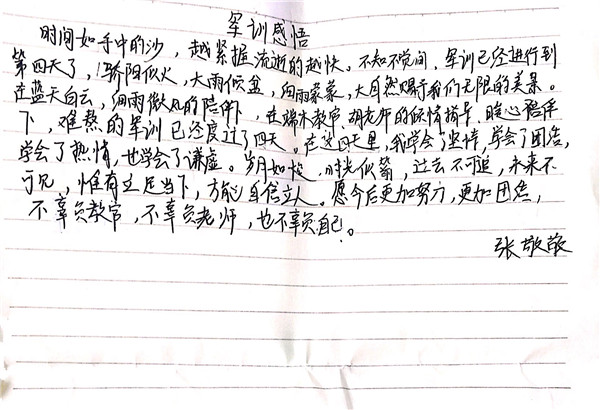 军训感悟
时间如手中的沙，越紧握流逝的越快。不知不觉间，军训已经进行到
第四天了，骄阳似火，大雨倾盆，细雨蒙蒙，大自然赐予我们无限的美景。
在蓝天白云，细雨微风的陪伴下，在端木教官、胡老师的倾情指导、暖心陪伴
下，难熬的军训已经度过了四天。在这四天里，我学会了坚持，学会了团结，
学会了热情，也学会了谦虚。岁月如梭，时光似箭，过去不可追，未来不
可见，惟有立足当下，方能自信立人。愿今后更加努力，更加团结，
不辜负教官，不辜负老师，也不辜负自己。
张敬